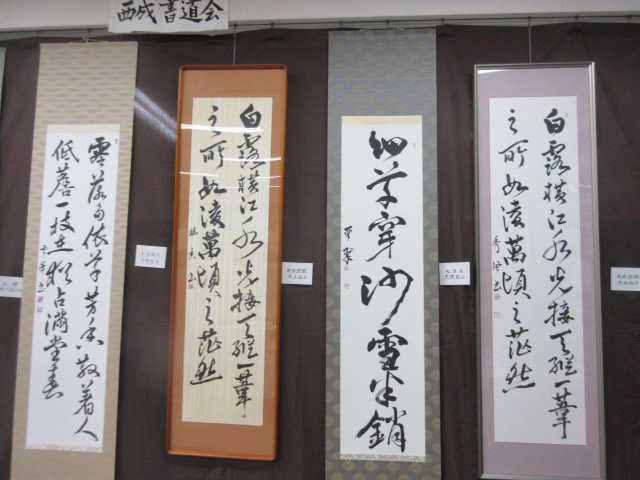 西成書道会
白露横江水光接天縦一葦
之所如凌萬頃之茫然
細草穿沙雪半銷
白露横江水光接天縦一葦
之所如凌萬頃之茫然
零落多依草芳香散着人
低簷一枝在猶占満堂春